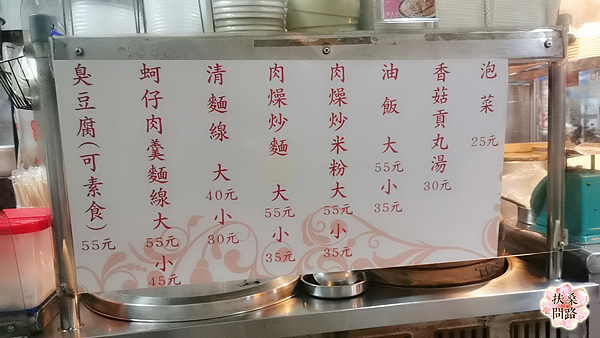 泡菜 25元
香菇貢丸湯 30元
油飯 大 55元 小 35元
肉燥炒米粉 大 55元 小 35元
肉燥炒麵 大 55元 小 35元
清麵線 大 40元 小 30元
蚵仔肉羹麵線 大 55元 小 45元
臭豆腐(可素食) 55元
扶桑
問路